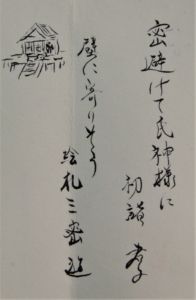 密避けて氏神様に
初議 孝
壁に寄りそう
絵札三密